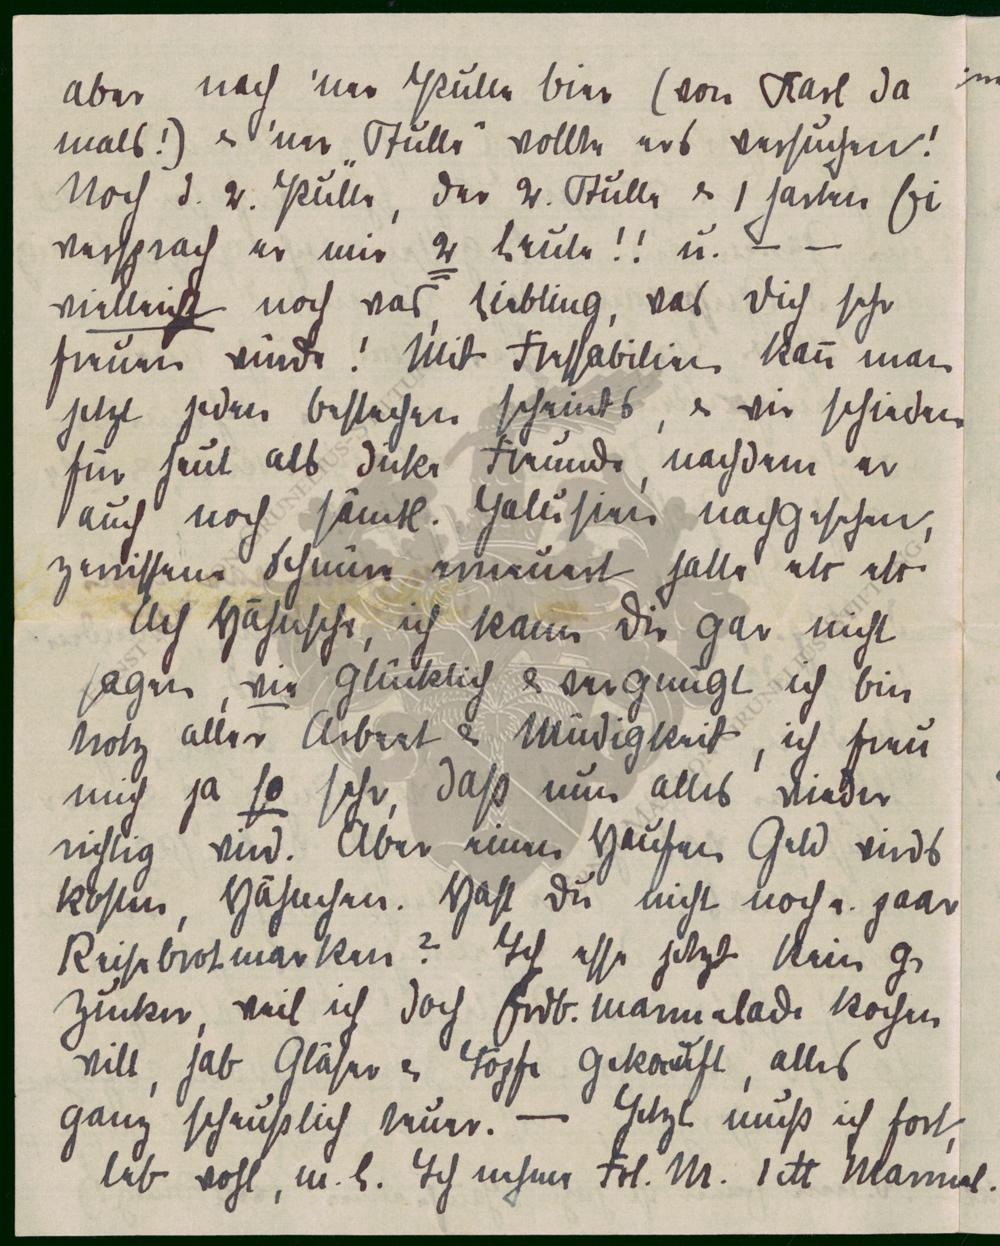 aber nach 'ner Pulle bier (von Karl da
mals!) & 'ner „Stulle" wollte ers versuchen!
Noch d. 2. Pulle, der 2. Stulle & 1 harten Ei
versprach er mir 2 Leute!! u. — —
vielleicht noch was, Liebling, was Dich sehr
freuen würde! Mit Fressabilien kan̄ man
jetzt jeden bestechen scheints, & wir schieden
für heut als dicke Freunde, nachdem er
auch noch sämtl. Jalusien nachgesehen,
zerrissene Schnüre erneuert hatte etc etc
Ach Hähnsche, ich kann Dir gar nicht
sagen, wie glücklich & vergnügt ich bin
trotz aller Arbeet & Müdigkeit, ich freu
mich ja so sehr, daß nun alles wieder
richtig wird. Aber einen Haufen Geld wirds
kosten, Hähnchen. Hast Du nicht noch e. paar
Reisebrotmarken? Ich esse jetzt kein g
Zucker, weil ich doch Erdb. marmelade kochen
will, hab Gläser & Töpfe gekauft, alles
ganz scheußlich teuer. — Jetzt muß ich fort,
leb wohl, m. L. Ich nehme Frl. M. 1 ℔ Marmel.